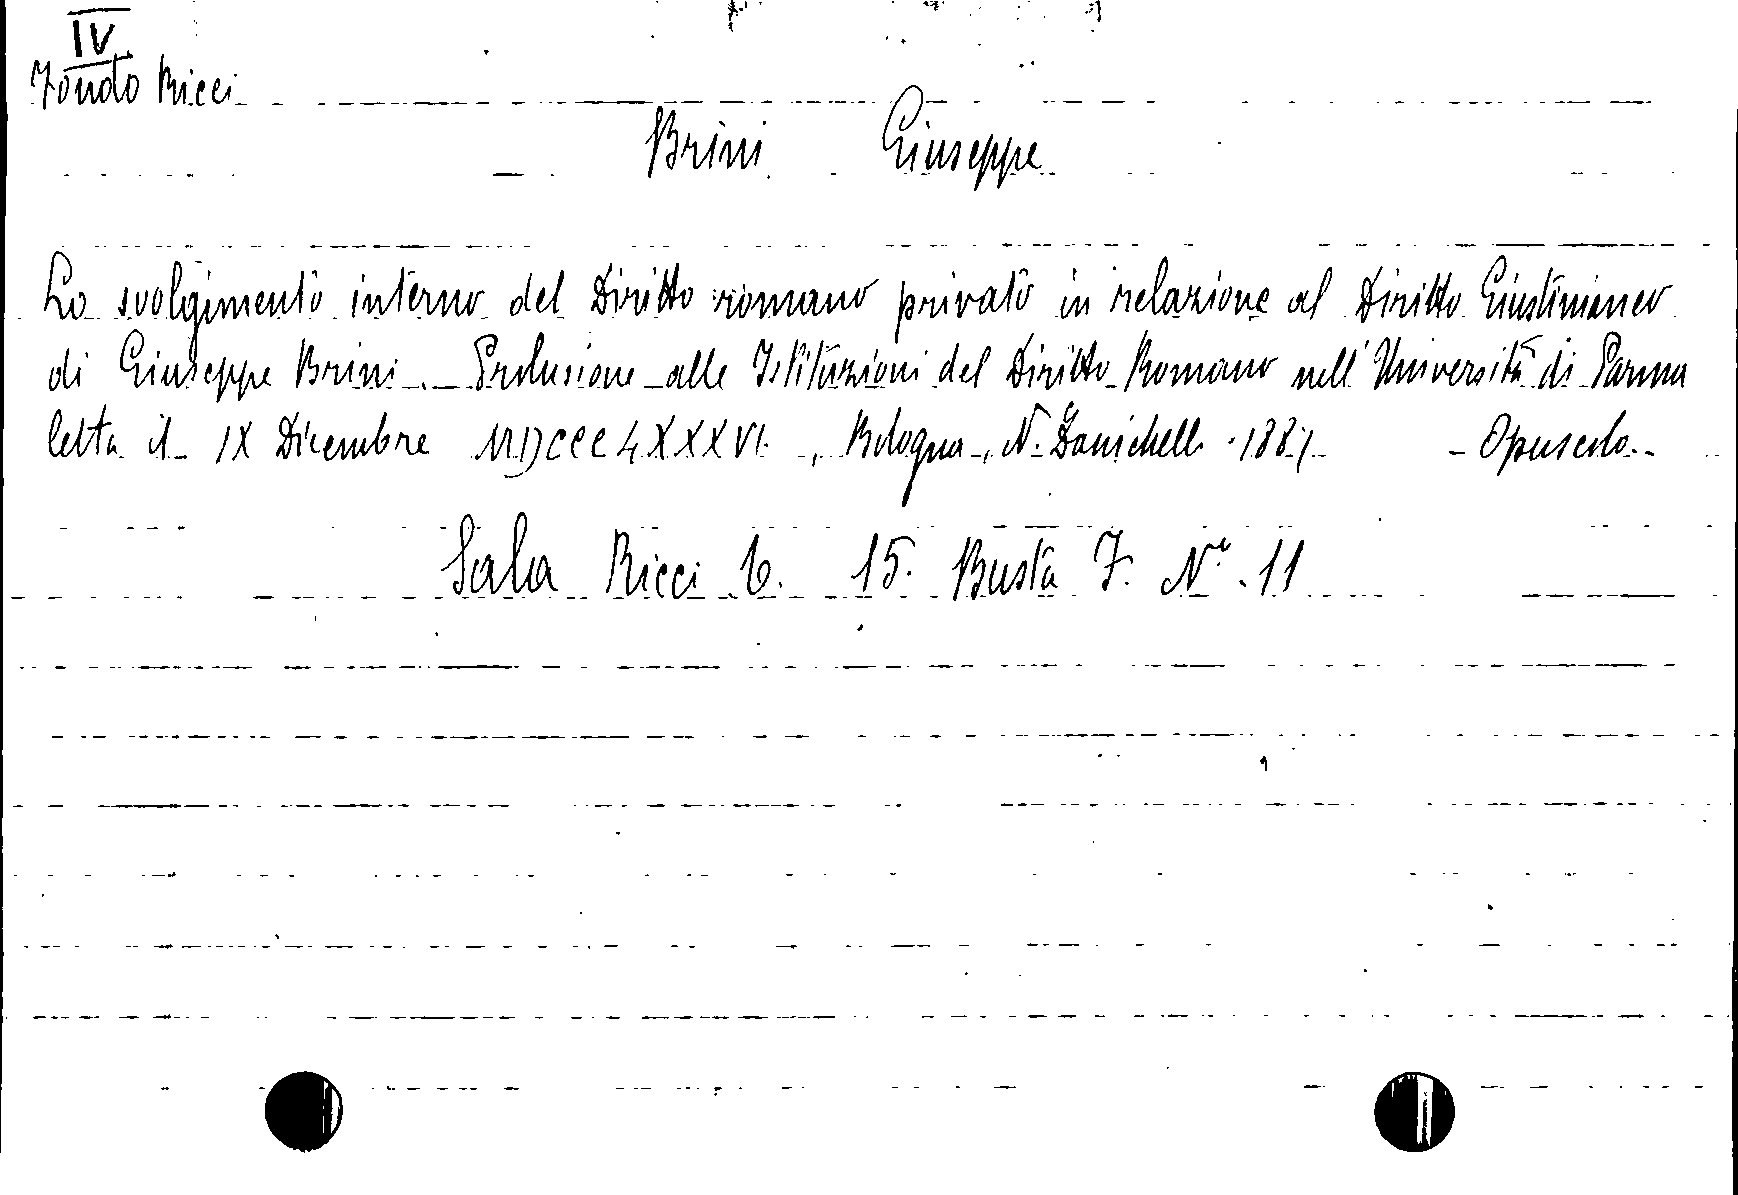 IV
Fondo Ricci
Brini Giuseppe
Lo svolgimento interno del Diritto romano privato in relazione al Diritto Giustinianeo
di Giuseppe Brini. - Prolusione alle Istituzioni del Diritto Romano nell'Università di Parma
letta il IX Dicembre MDCCCLXXXVI. , Bologna, N. Zanichelli. 1887 - Opuscolo. -
Sala Ricci 6. 15. Busta 7. N° 11